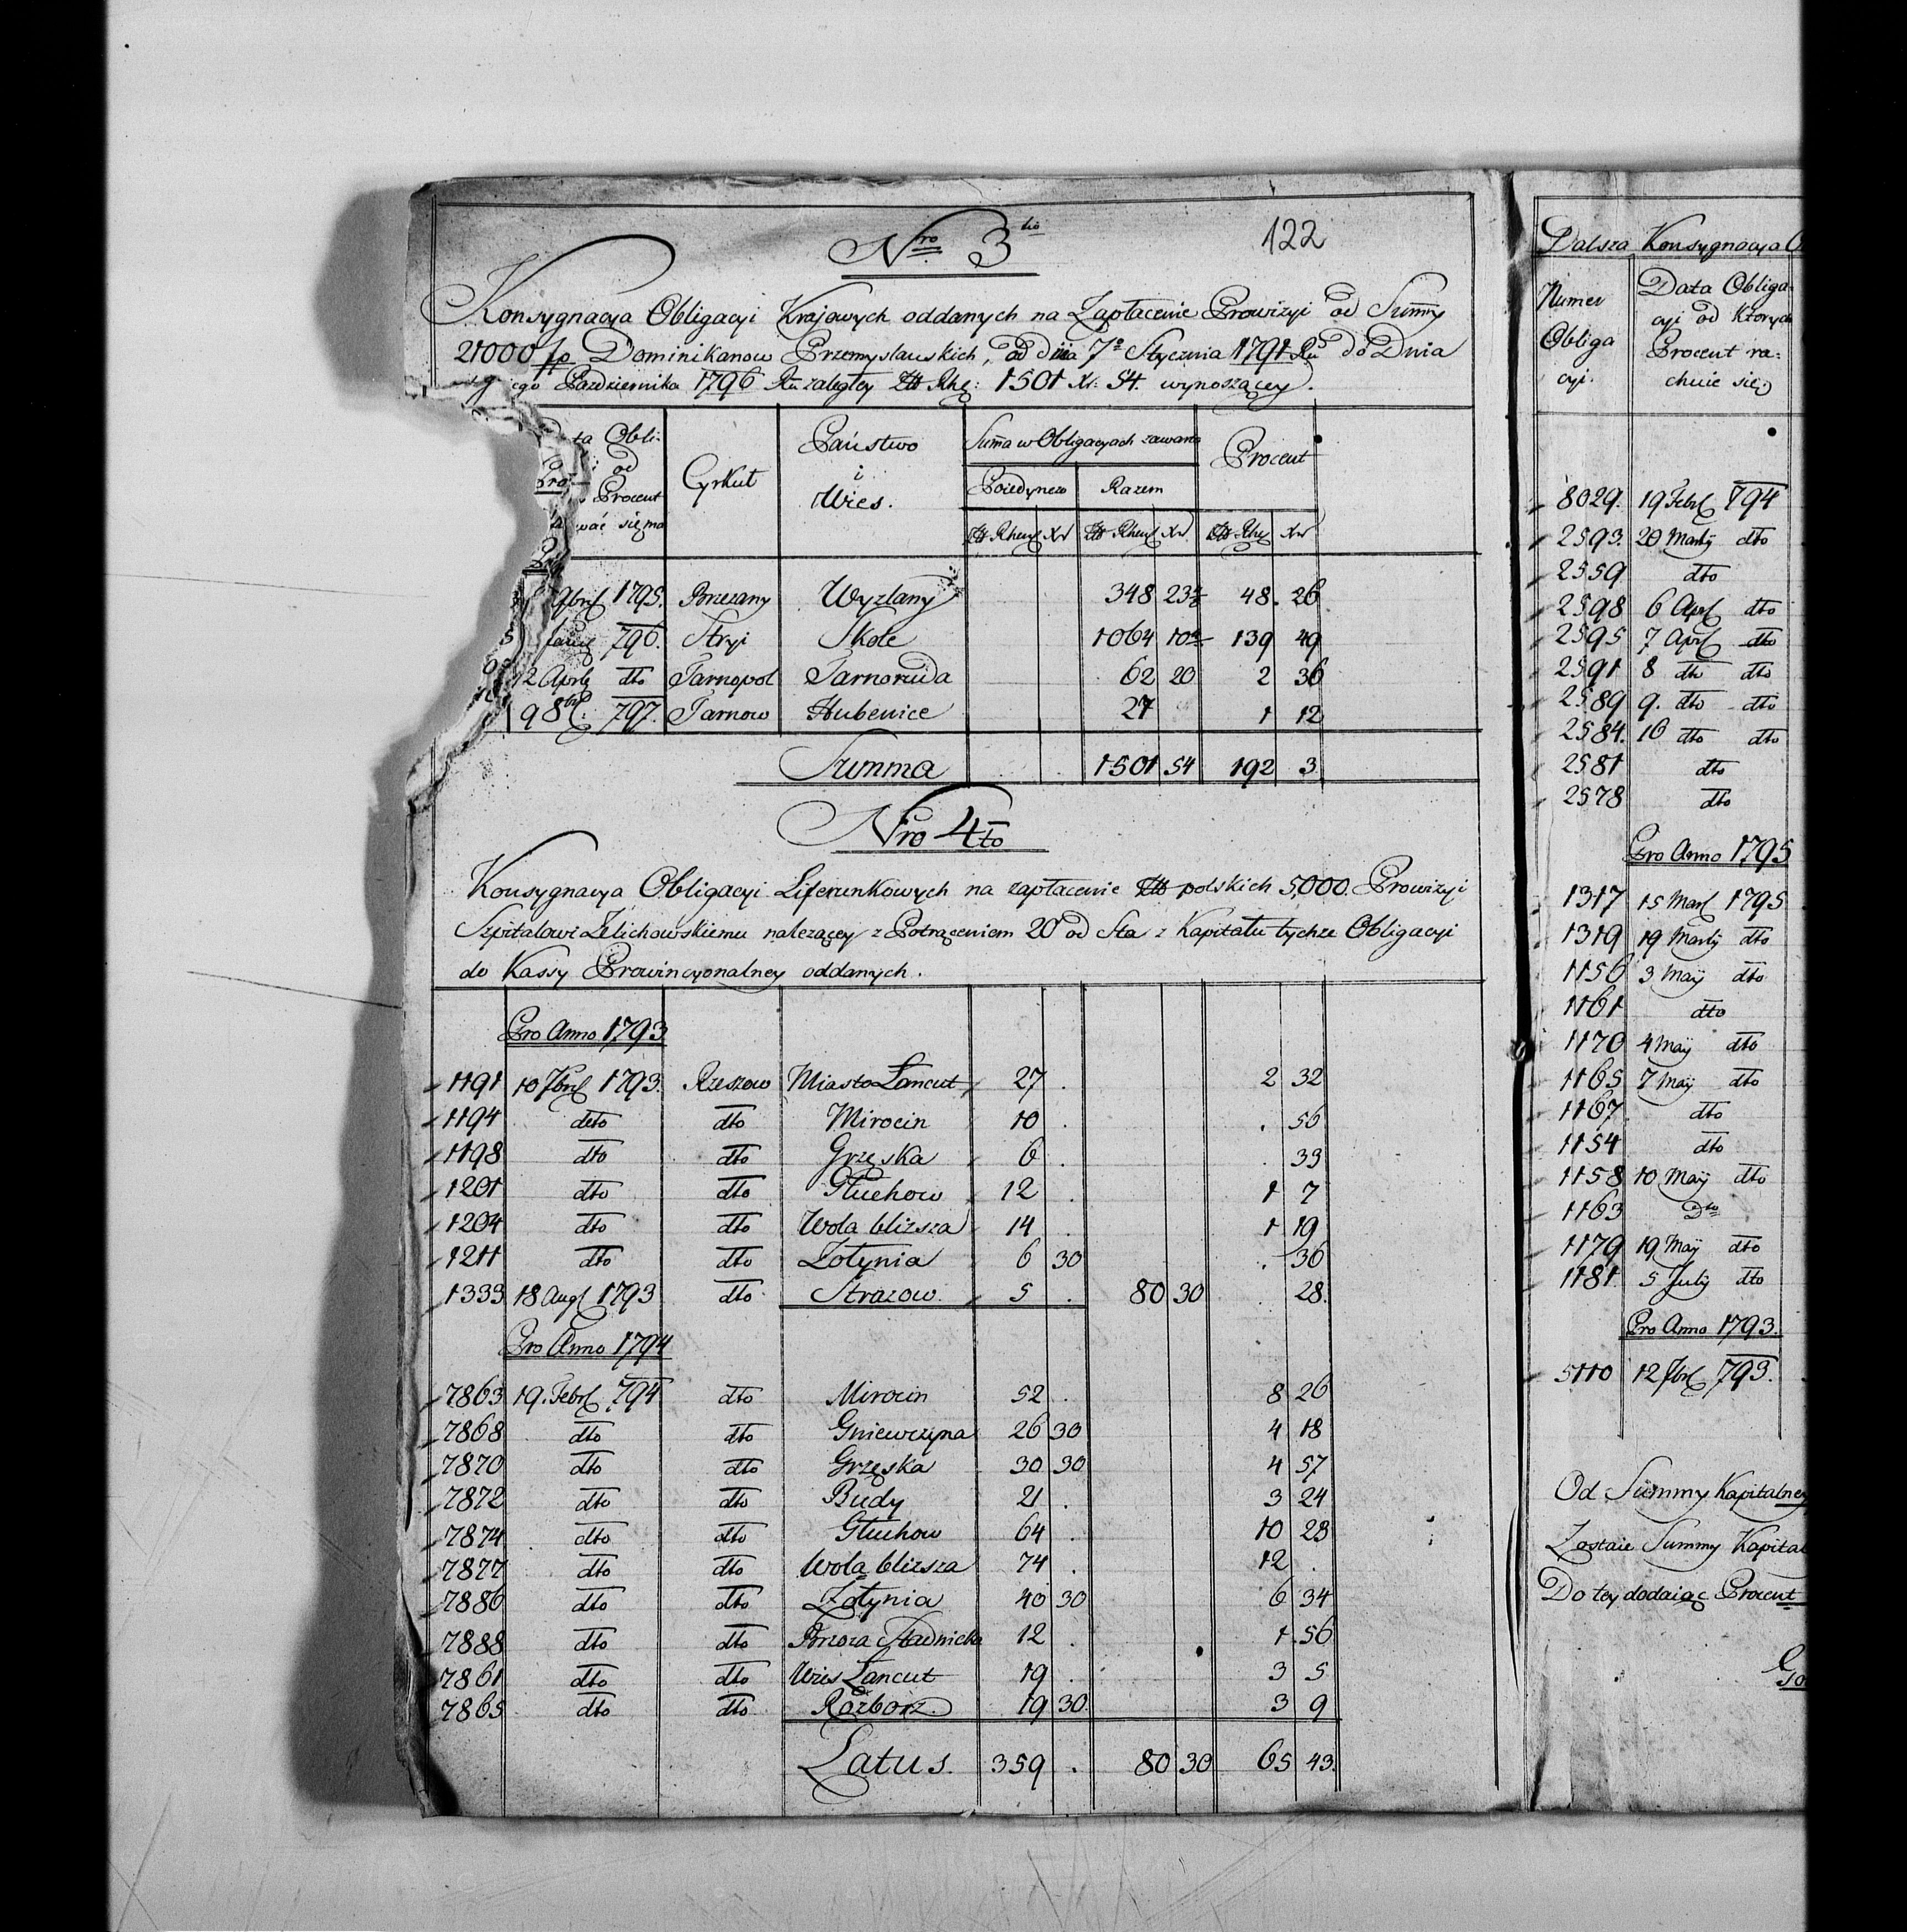 Nro 3tio 122
Konsygnacya Obligacyi Krajowych oddanych na Zapłacenie Prowizyi od Summy
21000 fp Dominikanow Przemyslawskich, od dnia 7o Stycznia 1791 Ru do Dnia
Pazdziernika 1796 Ru zaległey Złt Rhę: 1501 Xr: 54. wynoszącey.
Obli: Cyrkuł Państwo i Wies. Summa w Obligacyach zawarta Procent
od
Procent Poiedynczo Razem
wać się ma
Złt Rhen Xr Złt Rhen Xr Złt Rhę Xr
9bris 1795. Brzezany Wyzlany 348 23 48. 26
796. Stryi Skole 1064 10 139 49
12 Aprly dto Tarnopol Tarnoruda 62 20 2 36
9 8bris. 797. Tarnow Hubenice 27 1 12
Summa 1501 54 192 3.
Nro 4to
Konsygnacya Obligacyi Liferunkowych na zapłacenie Złt polskich 5,000. Prowizyi
Szpitalowi Zelichowskiemu nalezącey z Potrąceniem 20 od Sta z Kapitału tychze Obligacyi
do Kassy Prowincyonalney oddanych.
Pro Anno 1793
1191 10 7bris 1793. Rzeszow Miasto Lancut 27 . 2 32
1194 detto dto Mirocin 10 . . 56
1198 dto dto Grzęska 6 . . 33
1201 dto dto Głuchow 12 . 1 7
1204 dto dto Wola blizsza 14 . 1 19
1211 dto dto Zołynia 6 30 . 36
1333 18 Augs 1793 dto Strazow. 5 . 80 30 . 28.
Pro Anno 1794
7863 19. Febrs 794 dto Mirocin 52 . 8 26
7868 dto dto Gniewczyna 26 30 4 18
7870 dto dto Grzęska 30 30 4 57
7872 dto dto Budy 21 . 3 24
7874 dto dto Głuchow 64 . 10 23
7877 dto dto Wola blizsza 74 . 12 .
7886 dto dto Zołynia 40 30 6 34
7888 dto dto Brzoza Stadnicka 12 . 1 56
7861 dto dto Wies Lancut 19 . 3 5
7865 dto dto Rozborz. 19 30 3 9
Latus. 359 . 80 30 65 43.
Dalsza Konsygnacya
Numer Obligacyi. Data Obliga-
cyi od Których
Procent ra:
chuie się
8029. 19 Febrs 794
2593. 20 Martij dto
2559 dto
2598 6 Aprs dto
2595 7 Aprs dto
2591 8 dto dto
2589 9. dto dto
2584. 16 dto dto
2581 dto
2578 dto
Pro Anno 1795
1317 15 Mars 1795
1319 19 Martij dto
1156 3 Maij dto
1161 dto
1170 4 Maij dto
1165 7 Maij dto
1167 dto
1154 dto
1158 10 Maij dto
1163 Dto
1179 19 Maij dto
1181 5 Julij dto
Pro Anno 1793.
5110 12 7bris 793.
Od Summy Kapitalney
Zostaie Summy Kapital
Do tey dodaiąc Procent